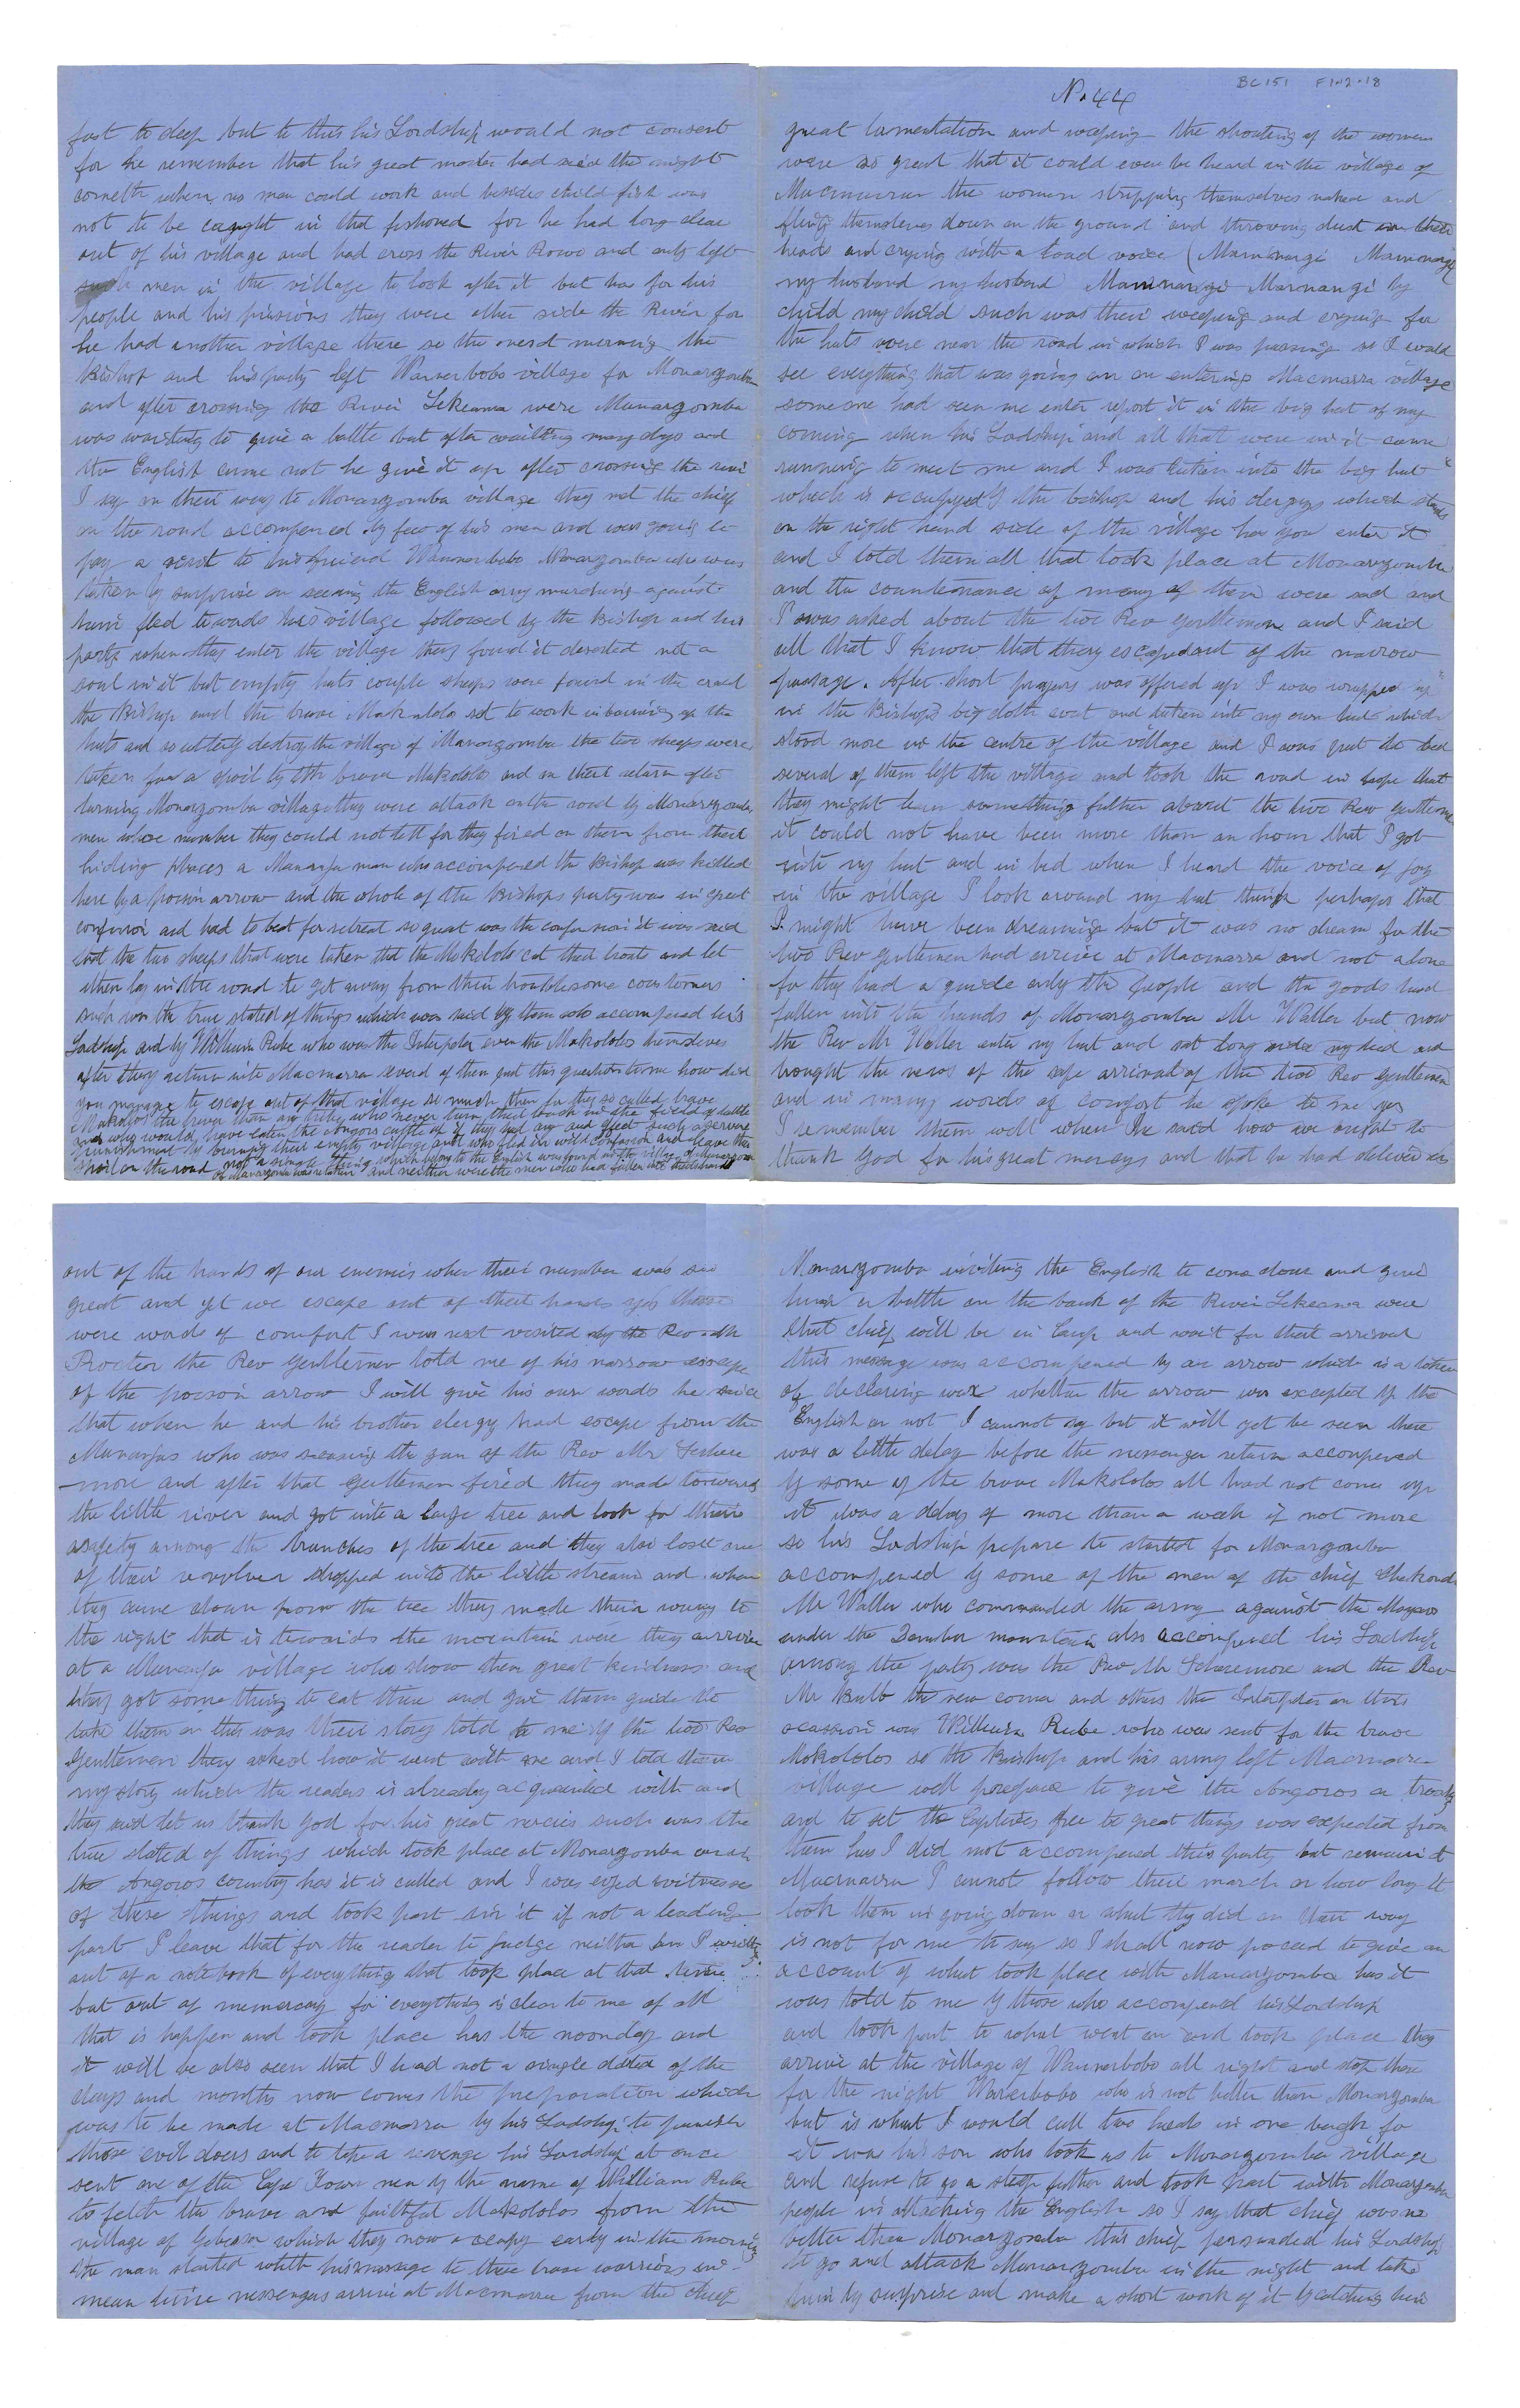 BC151 F1.12.18
No 44
great lamentation and weeping the shouting of the women
were so great that it could even be heard in the village of
Macmarra the women stripping themselves naked and
fling themselves down on the ground and throwing dust on their
heads and crying with a loud voice (Maminangi Maminangi
my husband my husband Maminangi Mamnangi by
child my child such was their weeping and crying for
the huts were near the road in which I was passing so I could
see everything that was going on on entering Macmarra village
someone had seen me enter report it in the big hut of my
coming when his Lordship and all that were in it came
running to meet me and I was taken into the big hut
which is occupyed by the bishop and his clergys which stands
on the right hand side of the village has you enter it
and I told them all that took place at Monarzomba
and the countenance of many of them were sad and
I was asked about the two Rev gentlemen and I said
all that I know that they escaped out of the narrow
passage. After short prayers was offered up I was wrapped up
in the Bishop's big cloth coat and taken into my own hut which
stood more in the centre of the village and I was put to bed
several of them left the village and took the road in hope that
they might learn something futher about the two Rev gentlemen
it could not have been more than an hour that I got
into my hut and in bed when I heard the voice of joy
in the village I look around my hut think perhaps that
I might have been dreaming but it was no dream for the
two Rev gentlemen had arrive at Macmarra and not alone
for they had a guide only the people and the goods had
fallen into the hands of Monarzomba Mr Waller but now
the Rev Mr Waller enter my hut and sat long side my bed and
brought the news of the safe arrival of the two Rev gentlemen
and in many words of comfort he spoke to me yes
I remember them well when he said how we ought to
thank God for his great mercys and that he had delivered us
out of the hands of our enemies when their number was so
great and yet we escape out of their hands yes those
were words of comfort I was next visited by the Rev Mr
Procter the Rev gentlemen told me of his narrow escape
of the poison arrow I will give his own words he said
that when he and his brother clergy had escape from the
Manarjas who was seasing the gun of the Rev Mr Scuda
-more and after that gentlemen fired they made towards
the little river and got into a large tree and look for their
asafety among the branches of the tree and they also losst one
of their revolver dropped into the little stream and when
they came down from the tree they made their way to
the right that is towards the mountain were they arrive
at a Manarja village who show them great kindness and
they got something to eat there and give them guide to
take them on this was their story told to me by the two Rev
Gentlemen they asked how it went with me and I told them
my story which the readers is already acquainted with and
they said let us thank God for his great mercies such was the
true stated of things which took place at Monarzomba or in
the Angoros country has it is called and I was eyed witnesse
of these things and took part in it if not a leading
part I leave that for the reader to judge neither am I writing
out of a note book of everything that took place at that time
but out of memoreary for everything is clear to me of all
that is happen and took place has the noonday and
it will be also seen that I had not a single dated of the
days and months now comes the preparation which
was to be made at Macmarra by his Lordship to punish
those evil doers and to take a revenge his Lordship at once
sent one of the Cape Town men by the name of William Rube
to fetch the brave and faithful Makololos from the
village of which they now occupy early in the morning
the man started with his message to these brave warriors in
mean time messengers arrive at Macmarra from the chief
Monarzomba inviting the English to come down and give
him a battle on the bank of the River Lekeanwa were
that chief will be in camp and wait for their arrival
this message was accompened by an arrow which is a token
of declaring war whether the arrow was excepted by the
English or not I cannot say but it will yet be seen there
was a little delay before the messenger return accompened
by some of the brave Makololos all had not come up
it was a delay of more than a week if not more
so his Lordship prepare to started for Monarzomba
accompened by some of the men of the chief
Mr Waller who commanded the army against the
under the Zomba mountain also accompened his Lordship
among the party was the Rev Mr Scuddamore and the Rev
Mr the new comer and others the Interpeter on this
occasion was William Rube who was sent for the brave
Makololos so the Bishop and his army left Macmarra
village well prepare to give the Angoros a
and to set the Captives free be great things was expected from
them has I did not accompened this party but remain at
Macmarra I cannot follow their march or how long it
took them in going down or what thy did on their way
is not for me to say so I shall now proceed to give an
account of what took place with Manarzomba has it
was told to me by those who accompened his Lordship
and took part to what went on and took place they
arrive at the village of Wannerbobo all right and stop there
for the night Wannerbobo who is not better than Monarzomba
but is what I would call two heads in one for
it was his son who took us to Monarzomba village
and refuse to go a step futher and took part with Monarzomba
people in attacking the English so I say that chief was no
better than Monarzomba this chief persuaded his Lordship
to go and attack Monarzomba in the night and take
him by surprise and make a short work of it by catching him
fast to sleep but to this his Lordship would not consent
for he remember that his great master had said the night
cometh when no man could work and besides child fish was
not to be caught in that fashoned for he had long clear
out of his village and had cross the River Rowo and only left
men in the village to look after it but has for his
people and his prisions they were other side the River for
he had another village there so the next morning the
Bishop and his party left Wannerbobo village for Monarzomba
and after crossing the River Lekeanwa were Manarzomba
was waiting to give a battle but after waitting many days and
the English came not he give it up after crossing the river
I say on their way to Monarzomba village they met the chief
on the road accompened by few of his men and was going to
pay a visit to his friend Wannerbobo Monarzomba who was
taken by surprise on seeing the English army marching against
him fled towards his village followed by the Bishop and his
party when they enter the village they found it deserted not a
soul in it but empty huts couple sheeps were found in the craal
the Bishop and the brave Makololo set to work in burning up the
huts and so utterly destroy the village of Manarzomba the two sheeps were
taken for a spoil by the brave Makololo and on their return after
burning Monarzomba village they were attack on the road by Monarzomba
men whose number they could not tell for they fired on them from their
hiding places a Mananja man who accompened the Bishop was killed
here by a poison arrow and the whole of the Bishops party was in great
confusion and had to beat for retreat so great was the confusion it was said
that the two sheeps that were taken that the Makololo cut their troats and let
them lay in the road to get away from their troublesome coustomers
such was the true stated of things which was said by them who accompened his
Lordship and by William Rube who was the Interpeter even the Makololos themselves
after they return into Macmarra several of them put this question to me how did
you manage to escape out of that village so much then for they so called brave
Makololos the braver than any tribe who never turn their back in the field of battle
and who would have eaten the Angoros cattle if they had any and fleet such a servere
punishment by burning their empty village and who fled in wild confusion and leave their
spoil on the road not a single thing which belong to the English was found in the village of Monarzomba
of Manarzomba was taken and neither were the men who had fallen into his hands